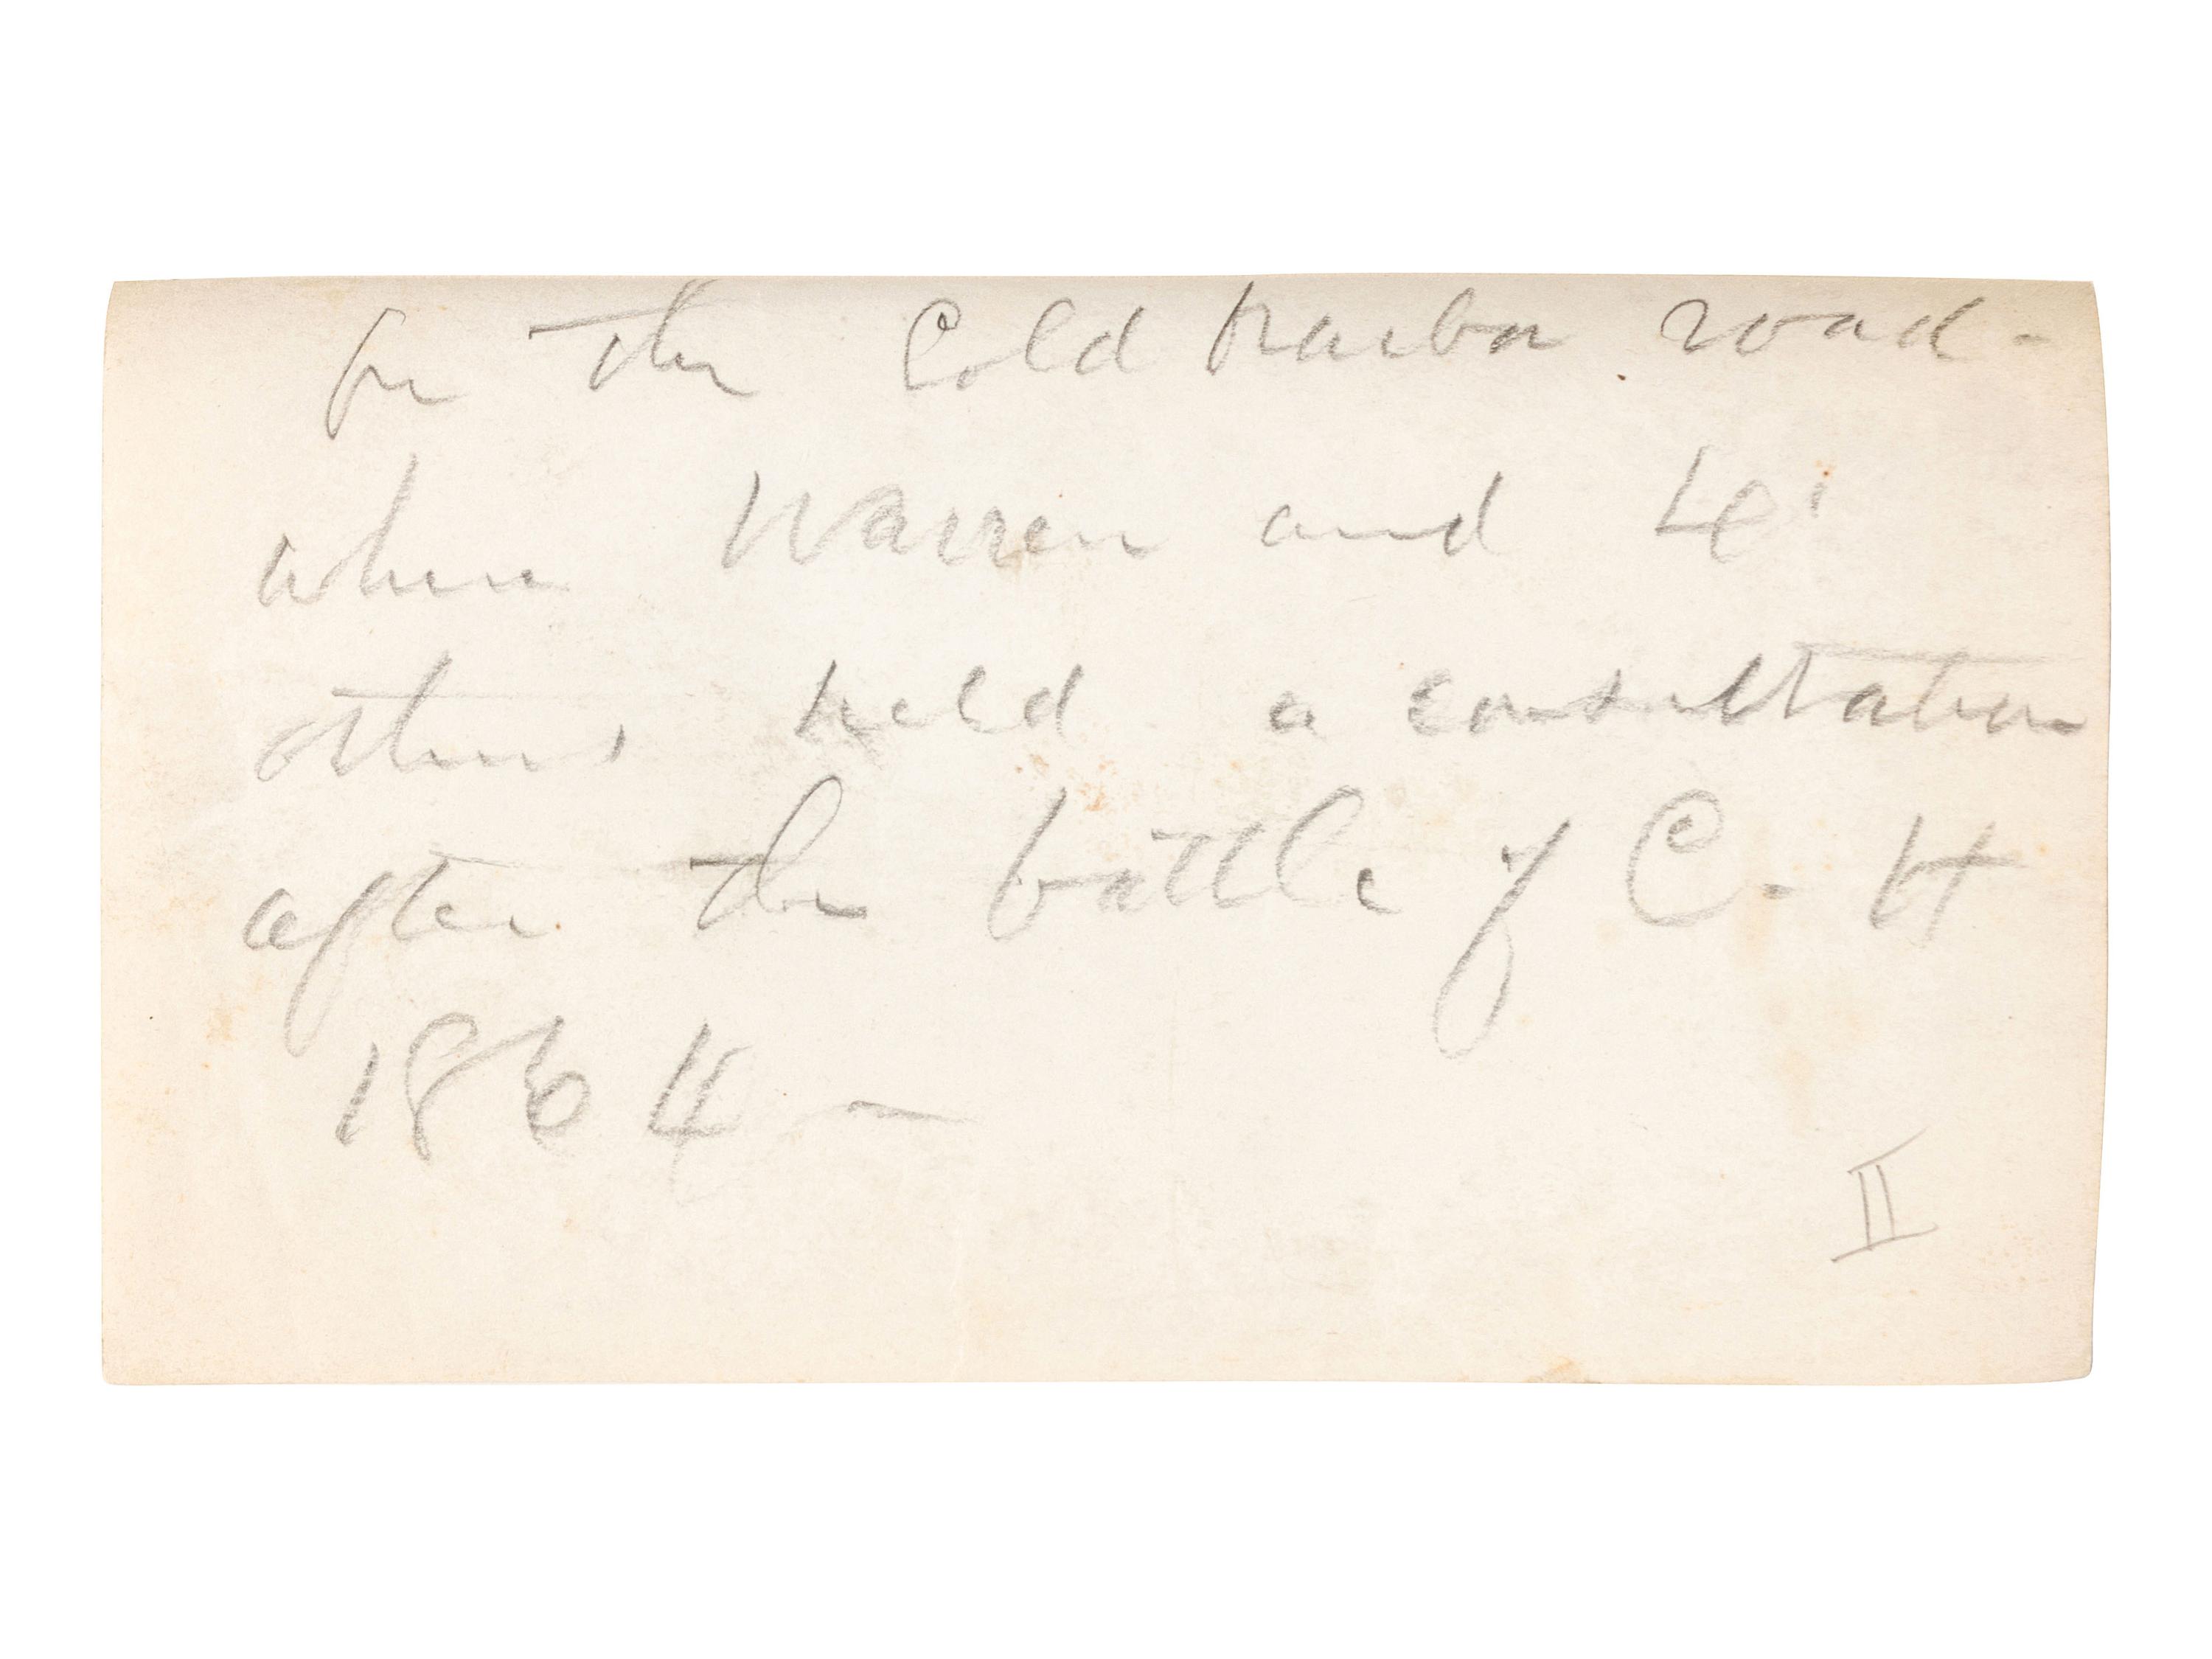 On the Cold Harbor road -
where Warren and
others held a consultation
after the battle of C. H
1864 —
II